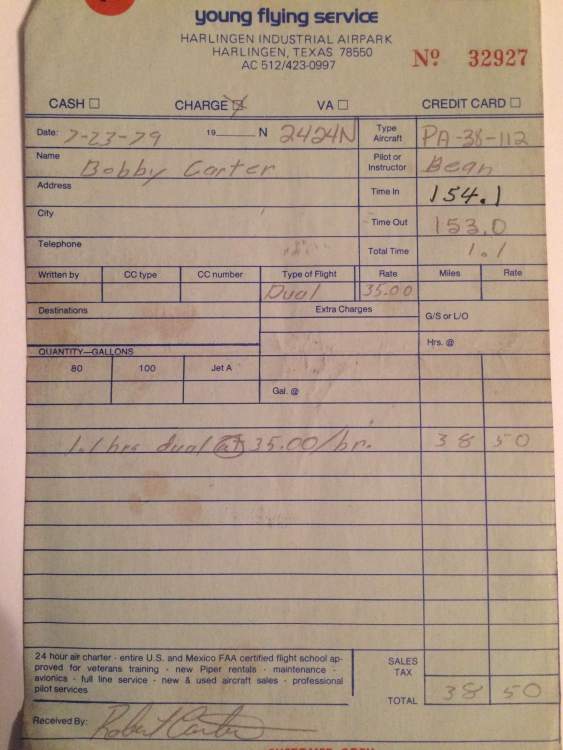 young flying service
HARLINGEN INDUSTRIAL AIRPARK
HARLINGEN, TEXAS 78550
AC 512/423-0997
Nº 32927
CASH CHARGE VA CREDIT CARD
Date: 7-23-79 19 N 2424N Type Aircraft PA-38-112
Name Bobby Carter Pilot or Instructor Bean
Address Time In 154.1
City Time Out 153.0
Telephone Total Time 1.1
Written by CC type CC number Type of Flight Rate Miles Rate
Dual 35.00
Destinations Extra Charges G/S or L/O
Hrs. @
QUANTITY—GALLONS
80 100 Jet A
Gal. @
1.1 hrs dual at 35.00/hr. 38 50
24 hour air charter - entire U.S. and Mexico FAA certified flight school ap-
proved for veterans training - new Piper rentals - maintenance -
avionics - full line service - new & used aircraft sales - professional
pilot services
SALES
TAX
TOTAL 38 50
Received By: Robert Carter